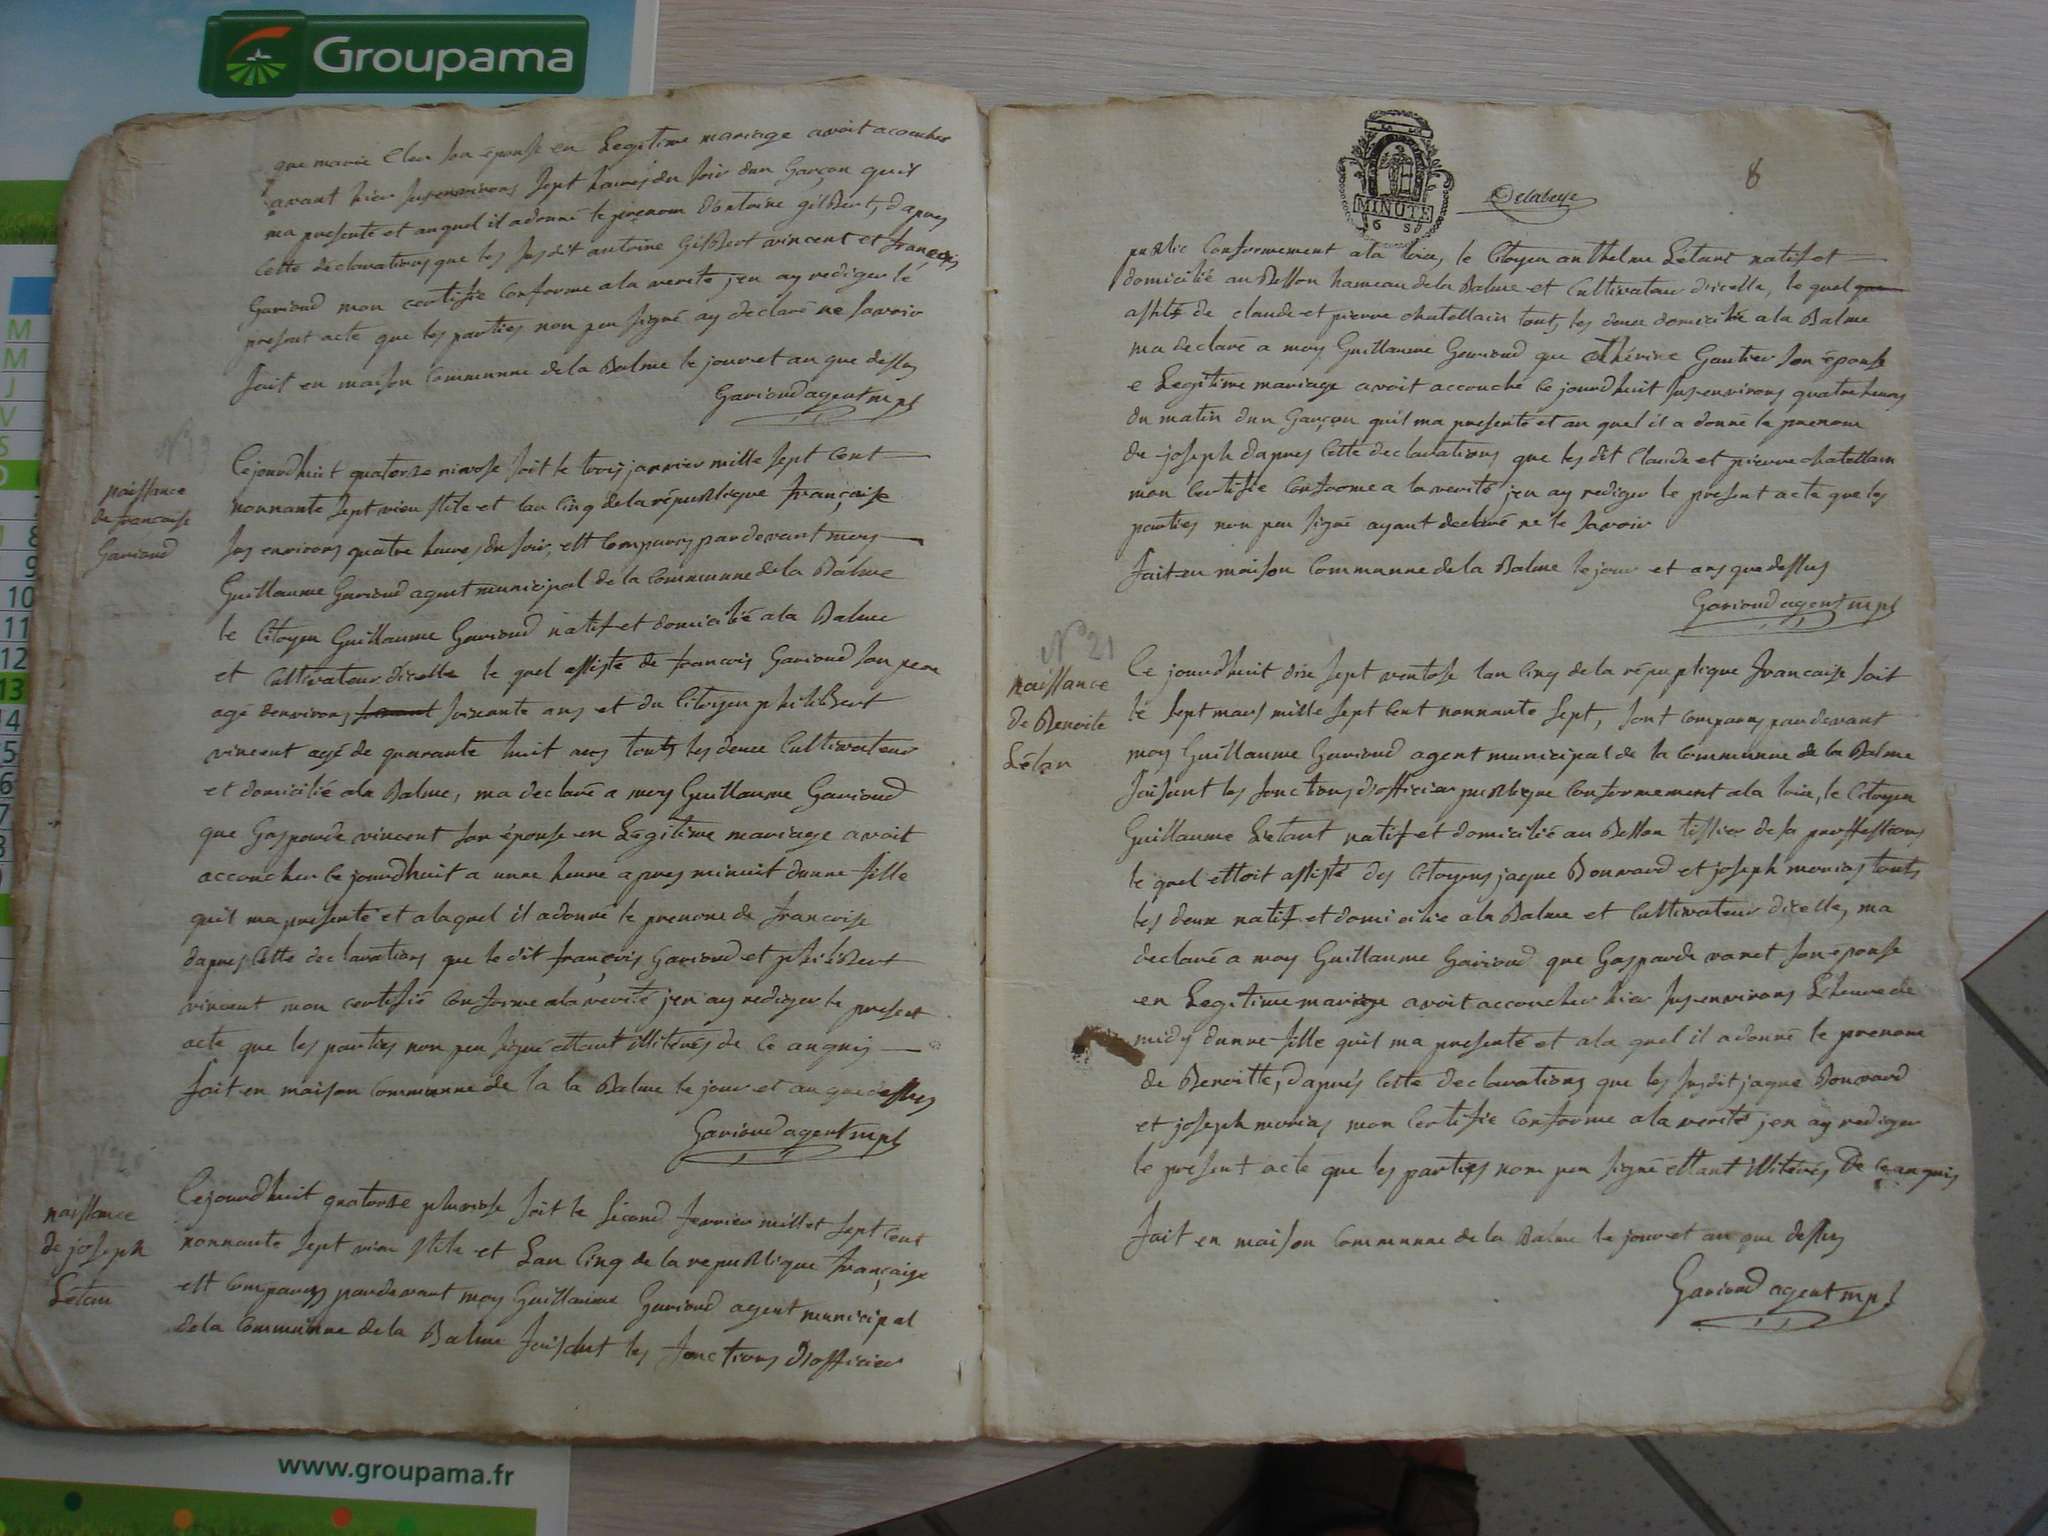 Groupama
que marie Cler son épouse en Legitime mariage avoit acoucher
avant hier sus environs sept heures du soir dun Garçon quil
ma presenté et auquel il a donné le prenom d'antoine gilbert, d'apres
cette declarations que les susdit antoine Gilbert vincent et françois
Garioud mon certifie conforme a la verité jen ay rediger le
present acte que les parties non peu signé ay declaré ne savoir
fait en maison Communne de la Balme le jour et an que dessus
Garioud agent mpl
naissance
de francoise
Garioud
Cejourdhuit quatorze nivose soit le trois janvier mille sept cent
nonnante sept vieu stile et lan cinq de la république française
sus environs quatre heures du soir, est Comparus pardevant moy
Guillaume Garioud agent municipal de la Communne de la Balme
le Citoyen Guillaume Garioud natif et domicilié a la Balme
et Cultivateur dicelle le quel assisté de francois Garioud son pere
agé denvirons soixante ans et du Citoyen philibert
vincent agé de quarante huit ans touts les deux Cultivateur
et domicilié a la Balme, ma declaré a moy Guillaume Garioud
que Gasparde vincent son épouse en Legitime mariage avoit
accoucher cejourdhuit a unne heure apres minuit dunne fille
quil ma presenté et a laquel il a donné le prenome de francoise
dapres cette declarations que le dit françois Garioud et philibert
vincent mon certifié conforme a la verité jen ay rediger le present
acte que les parties non peu signé ettant illiterés de ce anquis
fait en maison Communne de la la Balme le jour et an que dessus
Garioud agent mpl
naissance
de joseph
Létan
Cejourdhuit quatorze pluviose soit le second fevrier mill et sept cent
nonnante sept vieu stile et Lan Cinq de la republique française
est Comparus pardevant moy Guillaume Garioud agent municipal
de la Communne de la Balme faisdnt les fonctions d'officier
MINUTE
Delabeye
8
public Conformement a la loix, le Citoyen anthelme Létant natif et
domicilié au Besson hameau de la Balme et Cultivateur dicelle, le quel que
assité de claude et pierre chatellain touts les deux domicilié a la Balme
ma declaré a moy Guillaume Garioud que Cathérine Gautier son épouse
e Legitime mariage avoit accouché ce jourdhuit sus environs quatre heures
du matin dun Garçon quil ma presenté et au quel il a donné le prenom
de joseph dapres Cette declarations que les dit Claude et pierre chatellain
mon Certifie Conforme a la verité jen ay rediger le present acte que les
parties non peu signé ayant declaré ne le savoir
fait en maison Communne de la Balme le jour et ans que dessus
Garioud agent mpl
N° 21
naissance
de Benoite
Létan
Ce jourdhuit dix sept ventose lan cinq de la républiqüe francaise soit
le sept mars mille sept Cent nonnante sept, sont comparus pardevant
moy Guillaume Garioud agent municipal de la Communne de la Balme
faisant les fonctions d'officier publique Conformement a la loix, le Citoyen
Guillaume Létant natif et domicilié au Besson tissier de sa proffessions
le quel ettoit assisté des Citoyens jaque Bonvard et joseph morias touts
les deux natif et domicilie a la Balme et Cultivateur dicelle, ma
declaré a moy Guillaume Garioud que Gasparde son épouse
en Legitime mariage avoit accoucher hier sus environs L'heure de
midy dunne fille quil ma presenté et a la quel il a donné le prenome
de Benoitte, d'aprés Cette declarations que les susdit jaque Bonvard
et joseph morias mon Certifie Conforme a la verité jen ay rediger
le present acte que les parties nom peu signé ettant illiterés De ce anquis
fait en maison Communne de la Balme le jour et an que dessus
Garioud agent mpl
www.groupama.fr